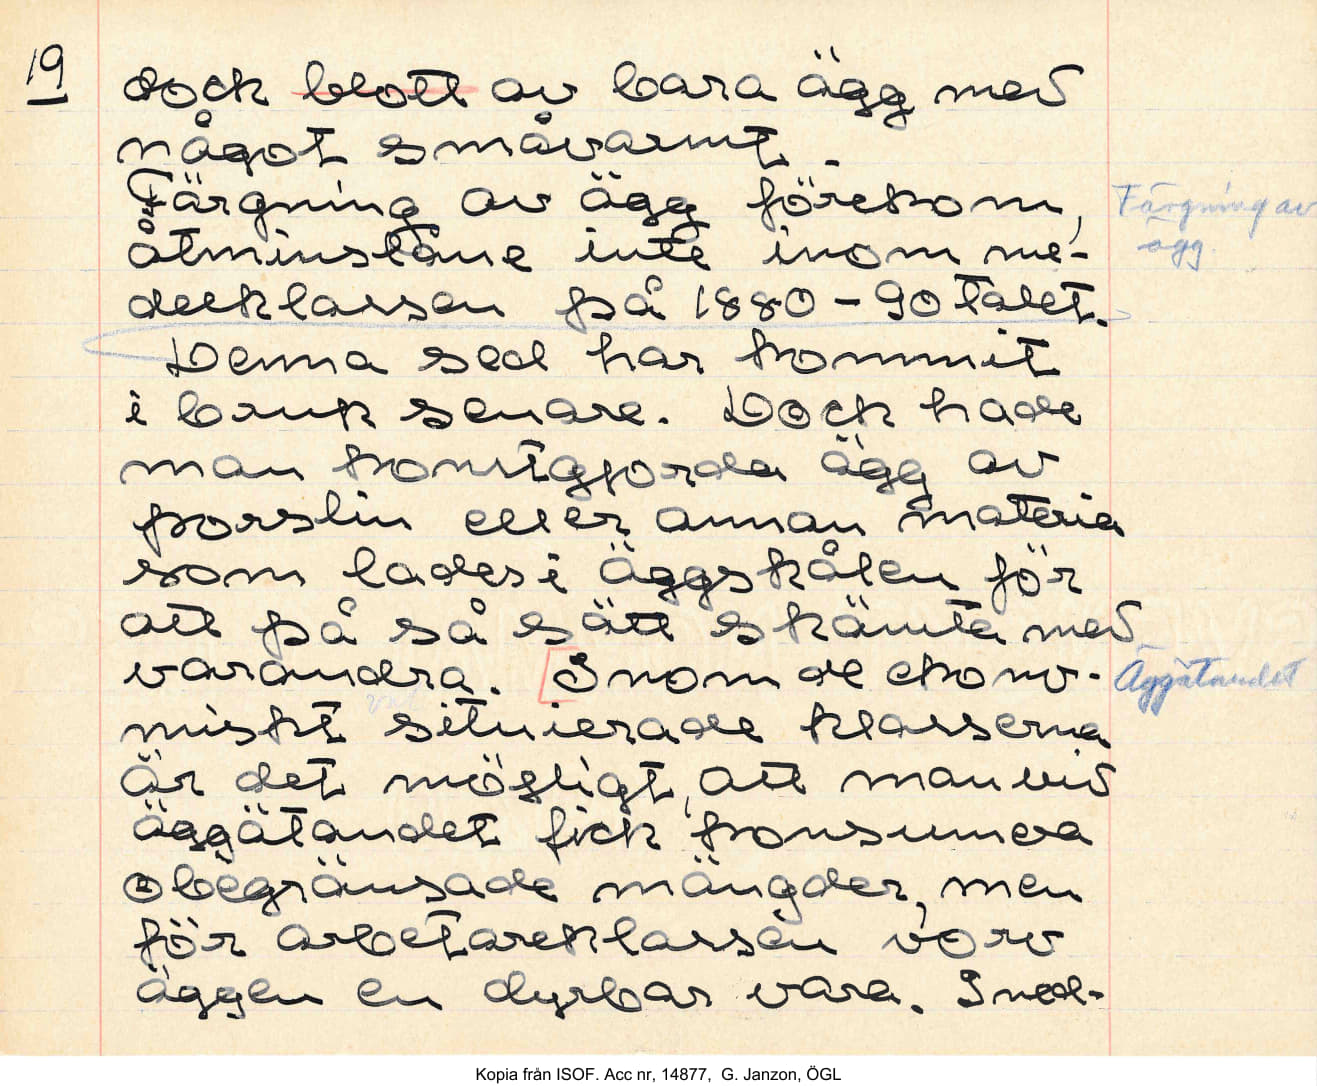 19
dock blott av bara ägg med
något småvarmt.
Färgning av ägg förekom,
Färgning av
ägg.
åtminstone inte inom me-
delklassen på 1880-90 talet.
Denna sed har kommit
i bruk senare. Dock hade
man konstgjorda ägg av
porslin eller annan materia
som lades i äggskålen för
att på så sätt skämta med
varandra. Inom de ekono-
Äggätandet
miskt situierade klasserna
är det möjligt, att man vid
äggätandet fick konsumera
obegränsade mängder, men
för arbetareklassen voro
äggen en dyrbar vara. I ned-
Kopia från ISOF. Acc nr, 14877, G. Janzon, ÖGL